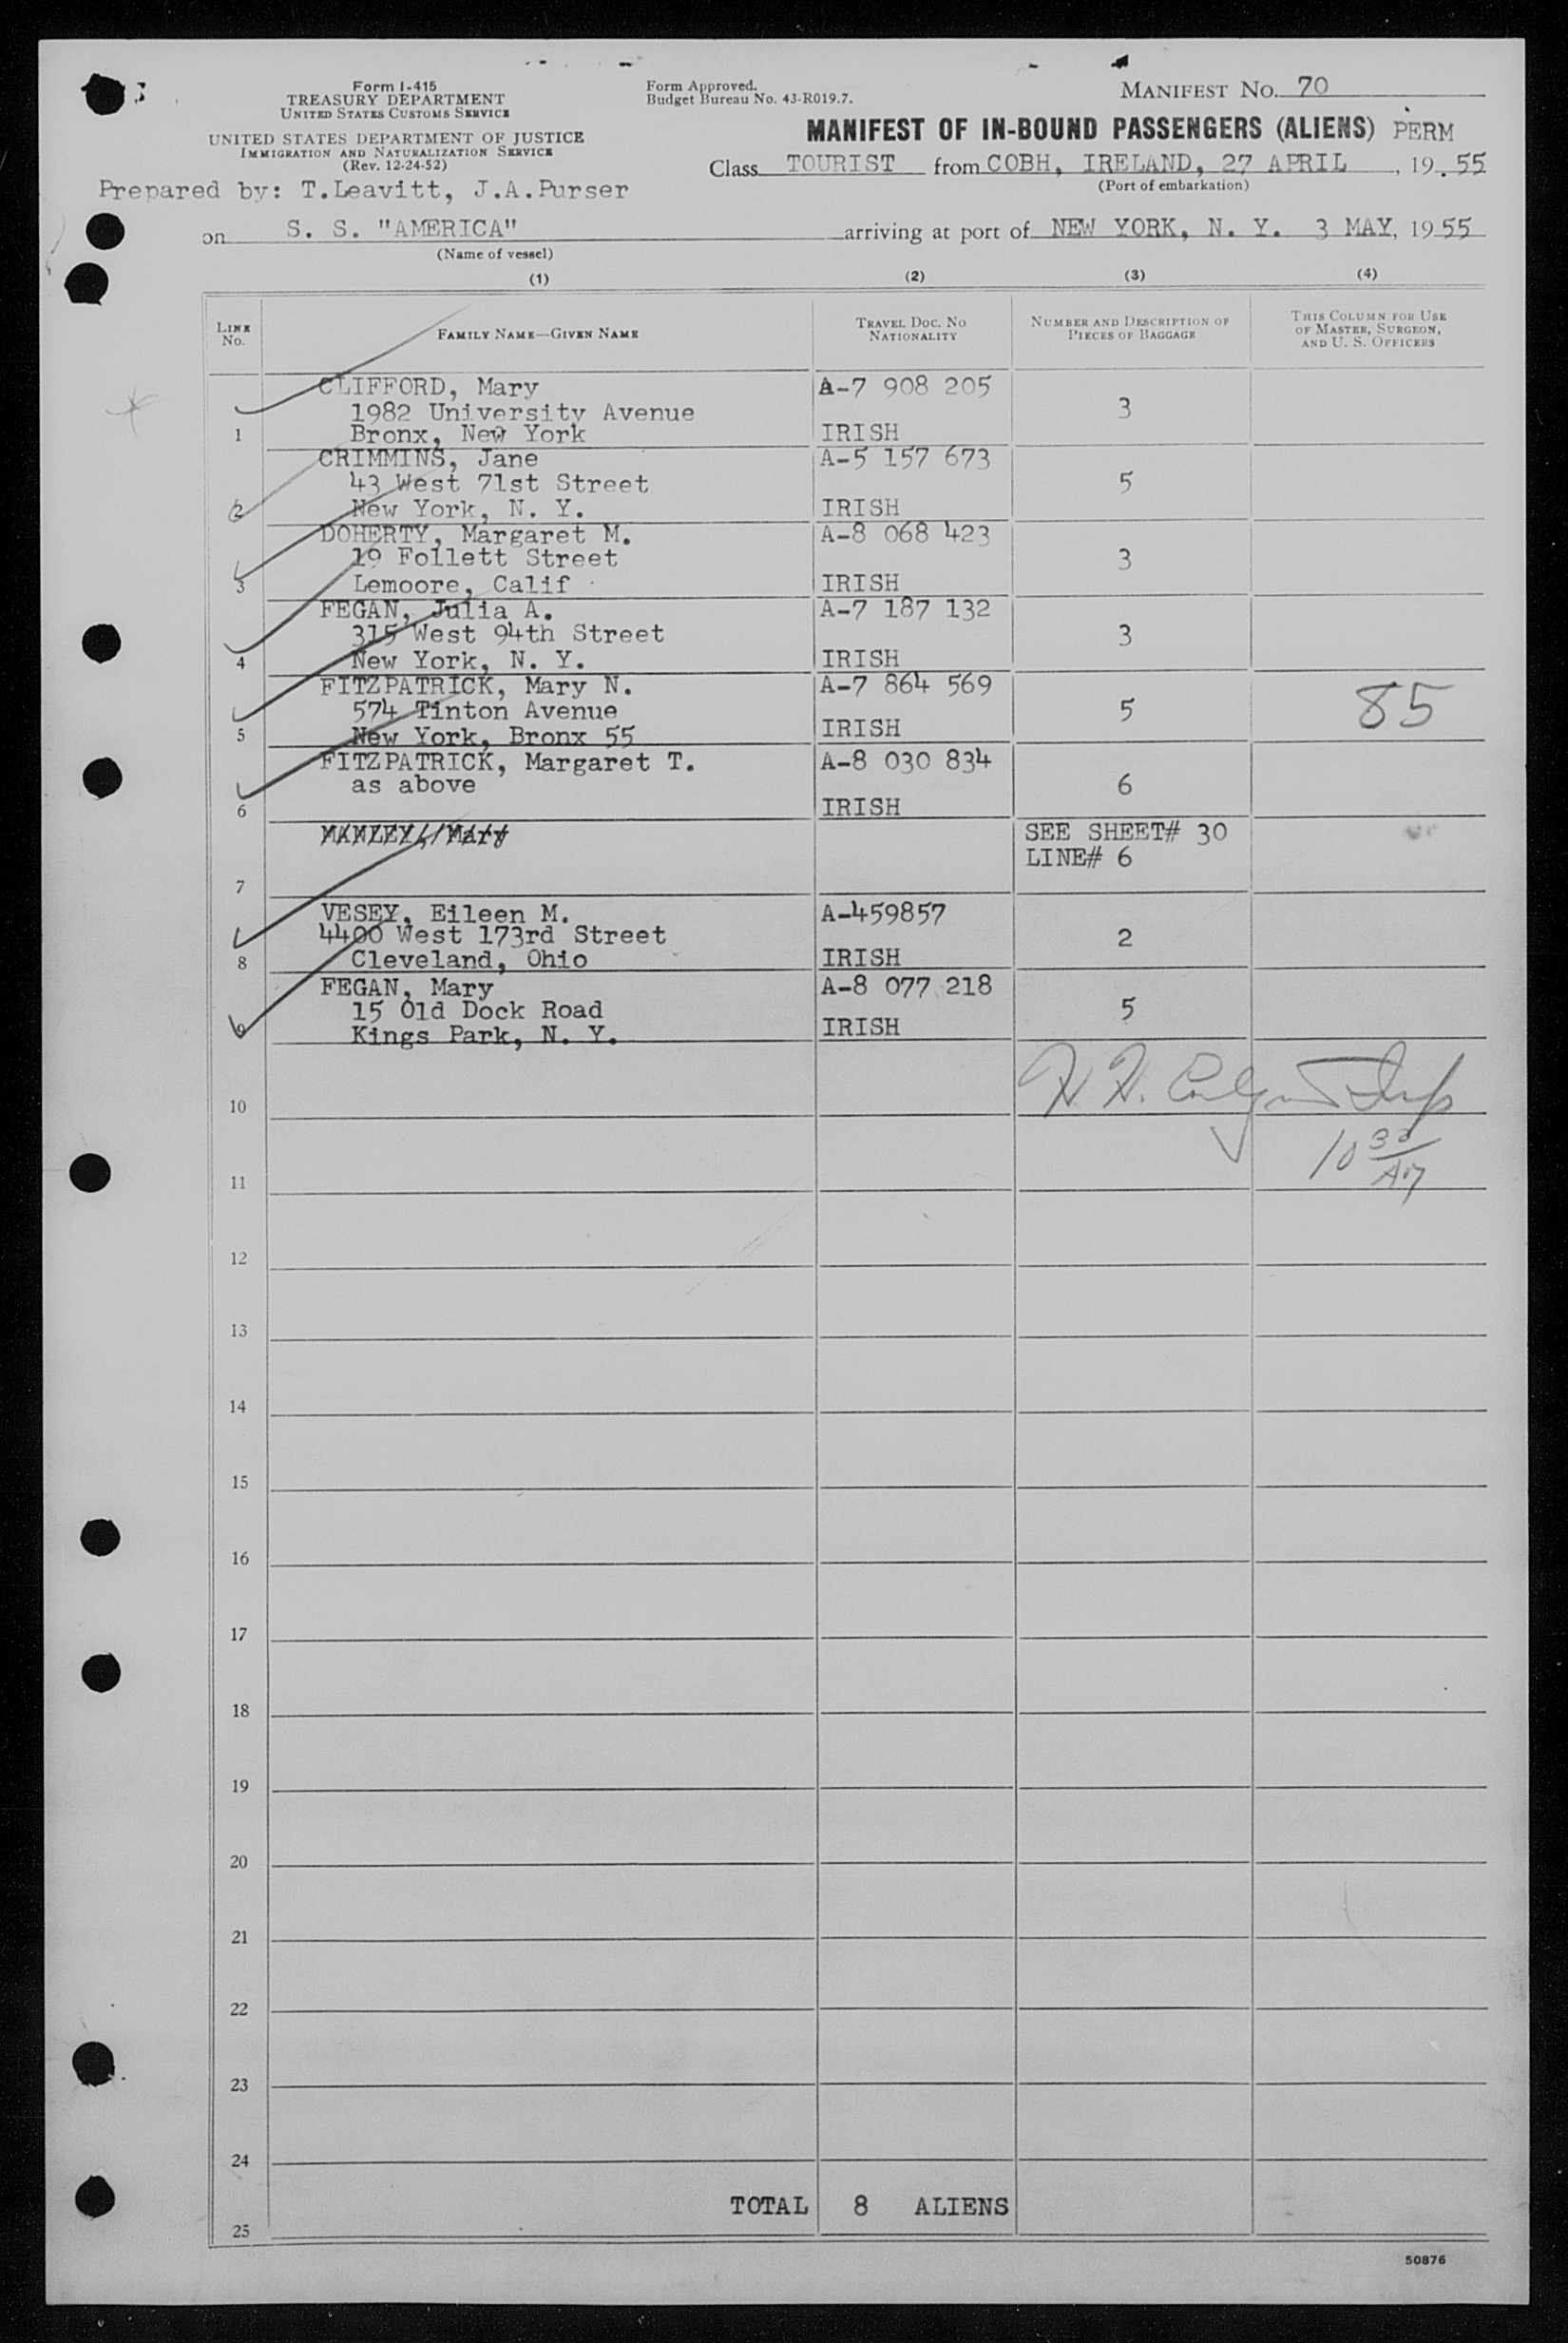 Form I-415
TREASURY DEPARTMENT
UNITED STATES CUSTOMS SERVICE
UNITED STATES DEPARTMENT OF JUSTICE
IMMIGRATION AND NATURALIZATION SERVICE
(Rev. 12-24-52)
Prepared by: T.Leavitt, J.A.Purser
Form Approved.
Budget Bureau No. 43-R019.7.
MANIFEST NO. 70
MANIFEST OF IN-BOUND PASSENGERS (ALIENS) PERM
Class TOURIST from COBH, IRELAND, 27 APRIL, 19.55
(Port of embarkation)
on S. S. "AMERICA" arriving at port of NEW YORK, N. Y. 3 MAY, 1955
(Name of vessel)
(1) (2) (3) (4)
LINE No. FAMILY NAME—GIVEN NAME TRAVEL DOC. NO NATIONALITY NUMBER AND DESCRIPTION OF PIECES OF BAGGAGE THIS COLUMN FOR USE OF MASTER, SURGEON, AND U. S. OFFICERS
CLIFFORD, Mary A-7 908 205
1982 University Avenue 3
1 Bronx, New York IRISH
CRIMMINS, Jane A-5 157 673
43 West 71st Street 5
2 New York, N. Y. IRISH
DOHERTY, Margaret M. A-8 068 423
19 Follett Street 3
3 Lemoore, Calif IRISH
FEGAN, Julia A. A-7 187 132
315 West 94th Street 3
4 New York, N. Y. IRISH
FITZPATRICK, Mary N. A-7 864 569
574 Tinton Avenue 5 85
5 New York, Bronx 55 IRISH
FITZPATRICK, Margaret T. A-8 030 834
as above 6
6 IRISH
MANLEY, Mary SEE SHEET# 30
LINE# 6
7
VESEY, Eileen M. A-459857
4400 West 173rd Street 2
8 Cleveland, Ohio IRISH
FEGAN, Mary A-8 077 218
15 Old Dock Road 5
9 Kings Park, N. Y. IRISH
10
10 30
11
12
13
14
15
16
17
18
19
20
21
22
23
24
TOTAL 8 ALIENS
25
50876